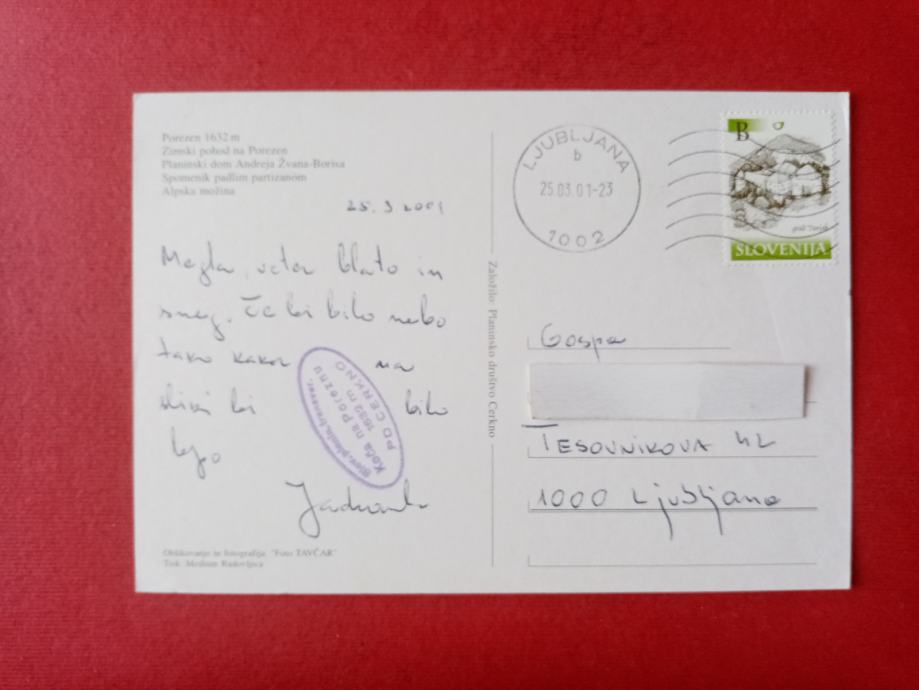 Porezen 1632 m
Zimski pohod na Porezen
Planinski dom Andreja Žvana-Borisa
Spomenik padlim partizanom
Alpska možina
25. 3 2001
Megla, veter blato in
sneg. Če bi bilo nebo
tako kakor na
sliki bi bilo
lepo
Koča na Poreznu
1632 m
PD CERKNO
Oblikovanje in fotografija: "Foto TAVČAR"
Tisk: Medium Radovljica
Založilo: Planinsko društvo Cerkno
LJUBLJANA
b
25.03.01-23
1002
B
grad Turjak
SLOVENIJA
Gospa
TESOVNIKOVA 42
1000 Ljubljana